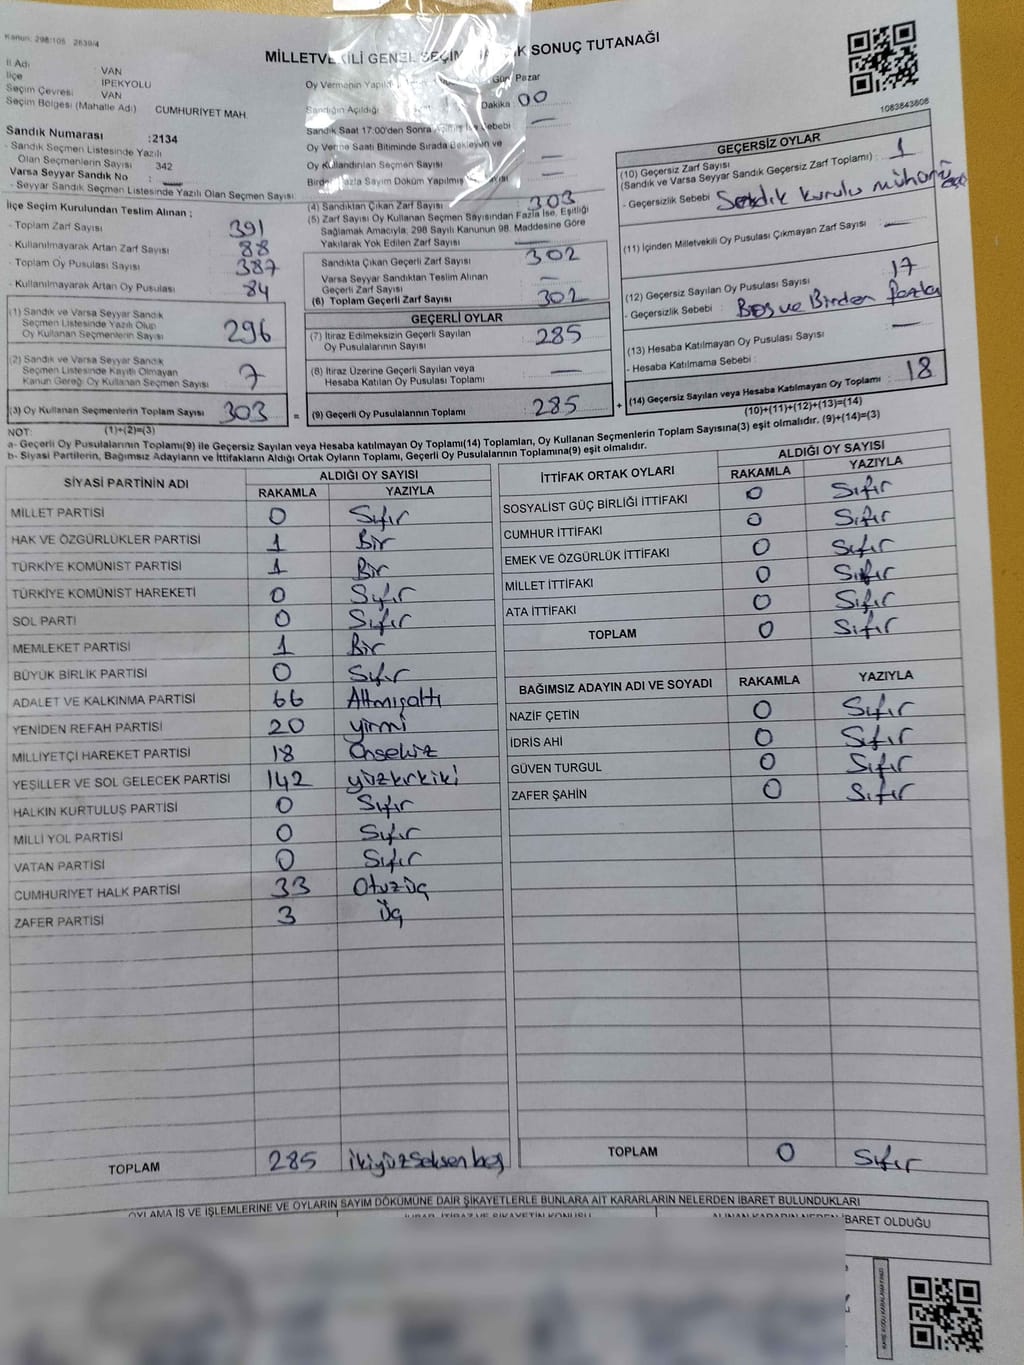 Kanun: 298/105 2839/4
MİLLETVEKİLİ GENEL SEÇİM SONUÇ TUTANAĞI
1083843808
İl Adı : VAN
İlçe : İPEKYOLU
Seçim Çevresi : VAN
Seçim Bölgesi (Mahalle Adı) CUMHURİYET MAH.
Sandık Numarası : 2134
- Sandık Seçmen Listesinde Yazılı
Olan Seçmenlerin Sayısı 342
Varsa Seyyar Sandık No : —
- Seyyar Sandık Seçmen Listesinde Yazılı Olan Seçmen Sayısı
İlçe Seçim Kurulundan Teslim Alınan ;
- Toplam Zarf Sayısı 391
- Kullanılmayarak Artan Zarf Sayısı 88
- Toplam Oy Pusulası Sayısı 387
- Kullanılmayarak Artan Oy Pusulası 84
(1) Sandık ve Varsa Seyyar Sandık
Seçmen Listesinde Yazılı Olup
Oy Kullanan Seçmenlerin Sayısı 296
(2) Sandık ve Varsa Seyyar Sandık
Seçmen Listesinde Kayıtlı Olmayan
Kanun Gereği Oy Kullanan Seçmen Sayısı 7
(3) Oy Kullanan Seçmenlerin Toplam Sayısı 303
(1)+(2)=(3)
Oy Vermenin Yapıldığı Gün: Pazar
Sandığın Açıldığı Dakika : 00
Sandık Saat 17:00'den Sonra Sebebi : —
Oy Verme Saati Bitiminde Sırada Bekleyen ve
Oy Kullandırılan Seçmen Sayısı —
Birden Fazla Sayım Döküm Yapılmış —
(4) Sandıktan Çıkan Zarf Sayısı : 303
(5) Zarf Sayısı Oy Kullanan Seçmen Sayısından Fazla İse, Eşitliği
Sağlamak Amacıyla, 298 Sayılı Kanunun 98. Maddesine Göre
Yakılarak Yok Edilen Zarf Sayısı —
Sandıkta Çıkan Geçerli Zarf Sayısı 302
Varsa Seyyar Sandıktan Teslim Alınan
Geçerli Zarf Sayısı —
(6) Toplam Geçerli Zarf Sayısı 302
GEÇERLİ OYLAR
(7) İtiraz Edilmeksizin Geçerli Sayılan
Oy Pusulalarının Sayısı 285
(8) İtiraz Üzerine Geçerli Sayılan veya
Hesaba Katılan Oy Pusulası Toplamı —
= (9) Geçerli Oy Pusulalarının Toplamı 285 +
GEÇERSİZ OYLAR
(10) Geçersiz Zarf Sayısı
(Sandık ve Varsa Seyyar Sandık Geçersiz Zarf Toplamı) : 1
- Geçersizlik Sebebi : Sandık kurulu mührü
(11) İçinden Milletvekili Oy Pusulası Çıkmayan Zarf Sayısı —
(12) Geçersiz Sayılan Oy Pusulası Sayısı 17
- Geçersizlik Sebebi : Boş ve Birden fazla
(13) Hesaba Katılmayan Oy Pusulası Sayısı —
- Hesaba Katılmama Sebebi :
(14) Geçersiz Sayılan veya Hesaba Katılmayan Oy Toplamı : 18
(10)+(11)+(12)+(13)=(14)
NOT:
a- Geçerli Oy Pusulalarının Toplamı(9) ile Geçersiz Sayılan veya Hesaba katılmayan Oy Toplamı(14) Toplamları, Oy Kullanan Seçmenlerin Toplam Sayısına(3) eşit olmalıdır. (9)+(14)=(3)
b- Siyasi Partilerin, Bağımsız Adayların ve İttifakların Aldığı Ortak Oyların Toplamı, Geçerli Oy Pusulalarının Toplamına(9) eşit olmalıdır.
SİYASİ PARTİNİN ADI ALDIĞI OY SAYISI
RAKAMLA YAZIYLA
MİLLET PARTİSİ 0 Sıfır
HAK VE ÖZGÜRLÜKLER PARTİSİ 1 Bir
TÜRKİYE KOMÜNİST PARTİSİ 1 Bir
TÜRKİYE KOMÜNİST HAREKETİ 0 Sıfır
SOL PARTİ 0 Sıfır
MEMLEKET PARTİSİ 1 Bir
BÜYÜK BİRLİK PARTİSİ 0 Sıfır
ADALET VE KALKINMA PARTİSİ 66 Altmışaltı
YENİDEN REFAH PARTİSİ 20 yirmi
MİLLİYETÇİ HAREKET PARTİSİ 18 Onsekiz
YEŞİLLER VE SOL GELECEK PARTİSİ 142 yüzkırkiki
HALKIN KURTULUŞ PARTİSİ 0 Sıfır
MİLLİ YOL PARTİSİ 0 Sıfır
VATAN PARTİSİ 0 Sıfır
CUMHURİYET HALK PARTİSİ 33 Otuzüç
ZAFER PARTİSİ 3 Üç
TOPLAM 285 ikiyüzseksenbeş
İTTİFAK ORTAK OYLARI ALDIĞI OY SAYISI
RAKAMLA YAZIYLA
SOSYALİST GÜÇ BİRLİĞİ İTTİFAKI 0 Sıfır
CUMHUR İTTİFAKI 0 Sıfır
EMEK VE ÖZGÜRLÜK İTTİFAKI 0 Sıfır
MİLLET İTTİFAKI 0 Sıfır
ATA İTTİFAKI 0 Sıfır
TOPLAM 0 Sıfır
BAĞIMSIZ ADAYIN ADI VE SOYADI RAKAMLA YAZIYLA
NAZİF ÇETİN 0 Sıfır
İDRİS AHİ 0 Sıfır
GÜVEN TURGUL 0 Sıfır
ZAFER ŞAHİN 0 Sıfır
TOPLAM 0 Sıfır
OYLAMA İŞ VE İŞLEMLERİNE VE OYLARIN SAYIM DÖKÜMÜNE DAİR ŞİKAYETLERLE BUNLARA AİT KARARLARIN NELERDEN İBARET BULUNDUKLARI
İHBAR, İTİRAZ VE ŞİKAYETİN KONUSU ALINAN KARARIN NEDEN İBARET OLDUĞU